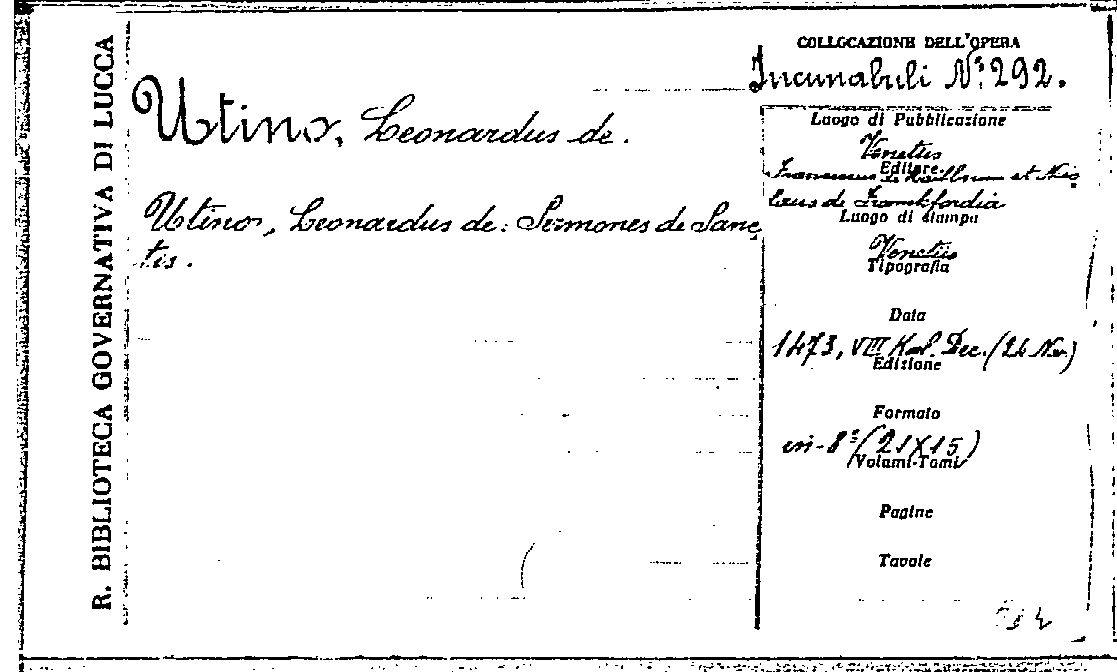 R. BIBLIOTECA GOVERNATIVA DI LUCCA
Utino, Leonardus de.
Utino, Leonardus de: Sermones de Sanc
tis.
COLLOCAZIONE DELL'OPERA
Incunabuli Nº 292.
Luogo di Pubblicazione
Venetiis
Editore
Franciscus de Hailbrun et Nico
laus de Frankfordia
Luogo di stampa
Venetiis
Tipografia
Data
1473, VIII Kal. Dec. (24 Nov.)
Edizione
Formato
in-8º (21X15)
Volumi-Tomi
Pagine
Tavole